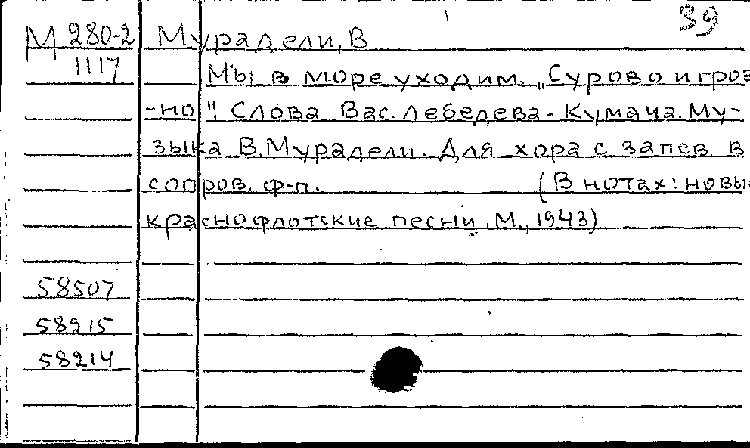 39
М 280-2 Мурадели, В
1117 Мы в море уходим. „Сурово и гроз
-но". Слова Вас. Лебедева-Кумача. Му-
зыка В. Мурадели. Для хора с запев в
сопров. ф-п. (В нотах: новые
краснофлотские песни. М., 1943)
58507
58215
58214